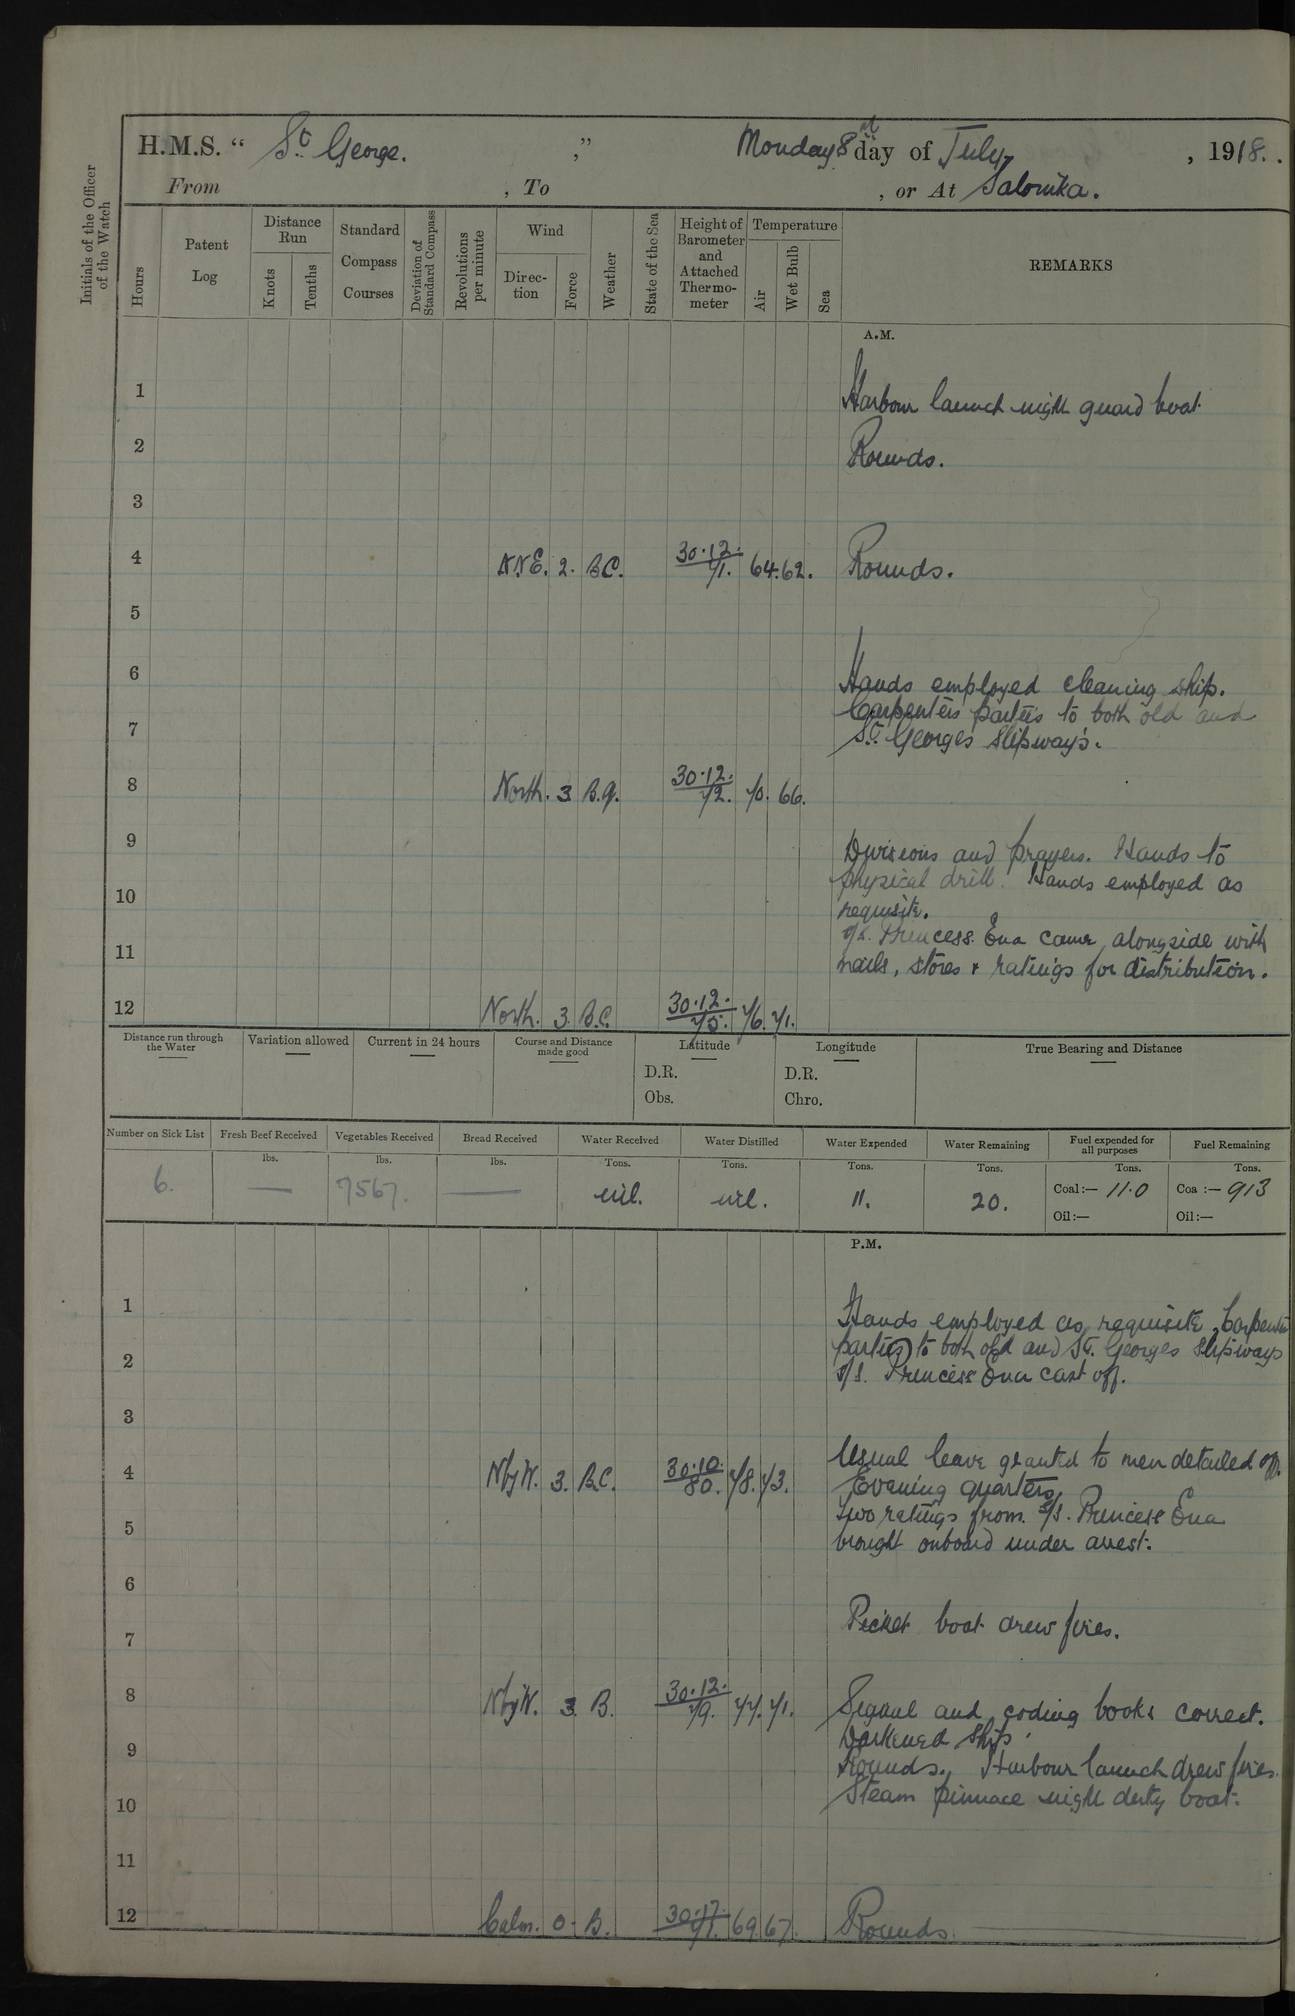 H.M.S. “ St. George. ,” Monday 8th day of July, 1918.
From , To , or At Salonika.
Initials of the Officer of the Watch
Hours
Patent Log
Distance Run
Knots
Tenths
Standard Compass Courses
Deviation of Standard Compass
Revolutions per minute
Wind
Direc-tion
Force
Weather
State of the Sea
Height of Barometer and Attached Thermo-meter
Temperature
Air
Wet Bulb
Sea
REMARKS
A.M.
1
Harbour launch night guard boat.
2 Rounds.
3
4 N.N.E. 2. B.C. 30.12. 71. 64. 62. Rounds.
5
6 Hands employed cleaning ship.
Carpenters parties to both old and
7 St. Georges Slipways.
8 North. 3 B.q. 30.12. 72. 70. 66.
9 Divisions and prayers. Hands to
physical drill. Hands employed as
10 requisite.
s/s. Princess Ena came alongside with
11 mails, stores & ratings for distribution.
12 North. 3. B.C. 30.12. 75. 76. 71.
Distance run through the Water
Variation allowed
Current in 24 hours
Course and Distance made good
Latitude
D.R.
Obs.
Longitude
D.R.
Chro.
True Bearing and Distance
Number on Sick List
Fresh Beef Received
Vegetables Received
Bread Received
Water Received
Water Distilled
Water Expended
Water Remaining
Fuel expended for all purposes
Fuel Remaining
lbs. lbs. lbs. Tons. Tons. Tons. Tons. Tons. Tons.
6. — 7567. — nil. nil. 11. 20. Coal:— 11.0 Coa :— 913
Oil:— Oil:—
P.M.
1 Hands employed as requisite, Carpenters
parties to both old and St. Georges Slipways
2 s/s. Princess Ena cast off.
3
Usual leave granted to men detailed off.
4 N by W. 3. B.C. 30.10. 80. 78. 73. Evening quarters
Two ratings from s/s. Princess Ena
5 brought onboard under arrest.
6
Picket boat drew fires.
7
8 N by W. 3. B. 30.12. 79. 77. 71. Signal and coding books correct.
Darkened Ship.
9 Rounds. Harbour launch drew fires.
10 Steam pinnace night duty boat.
11
12 Calm. 0. B. 30.17. 71. 69. 67. Rounds.